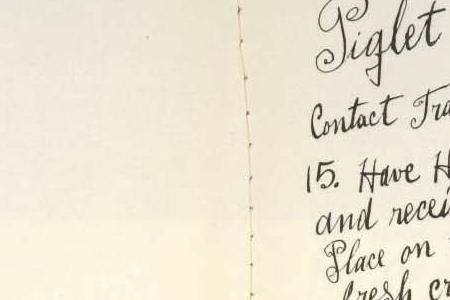 Piglet
Contact Tra
15. Have H
and recei
Place on
fresh cr